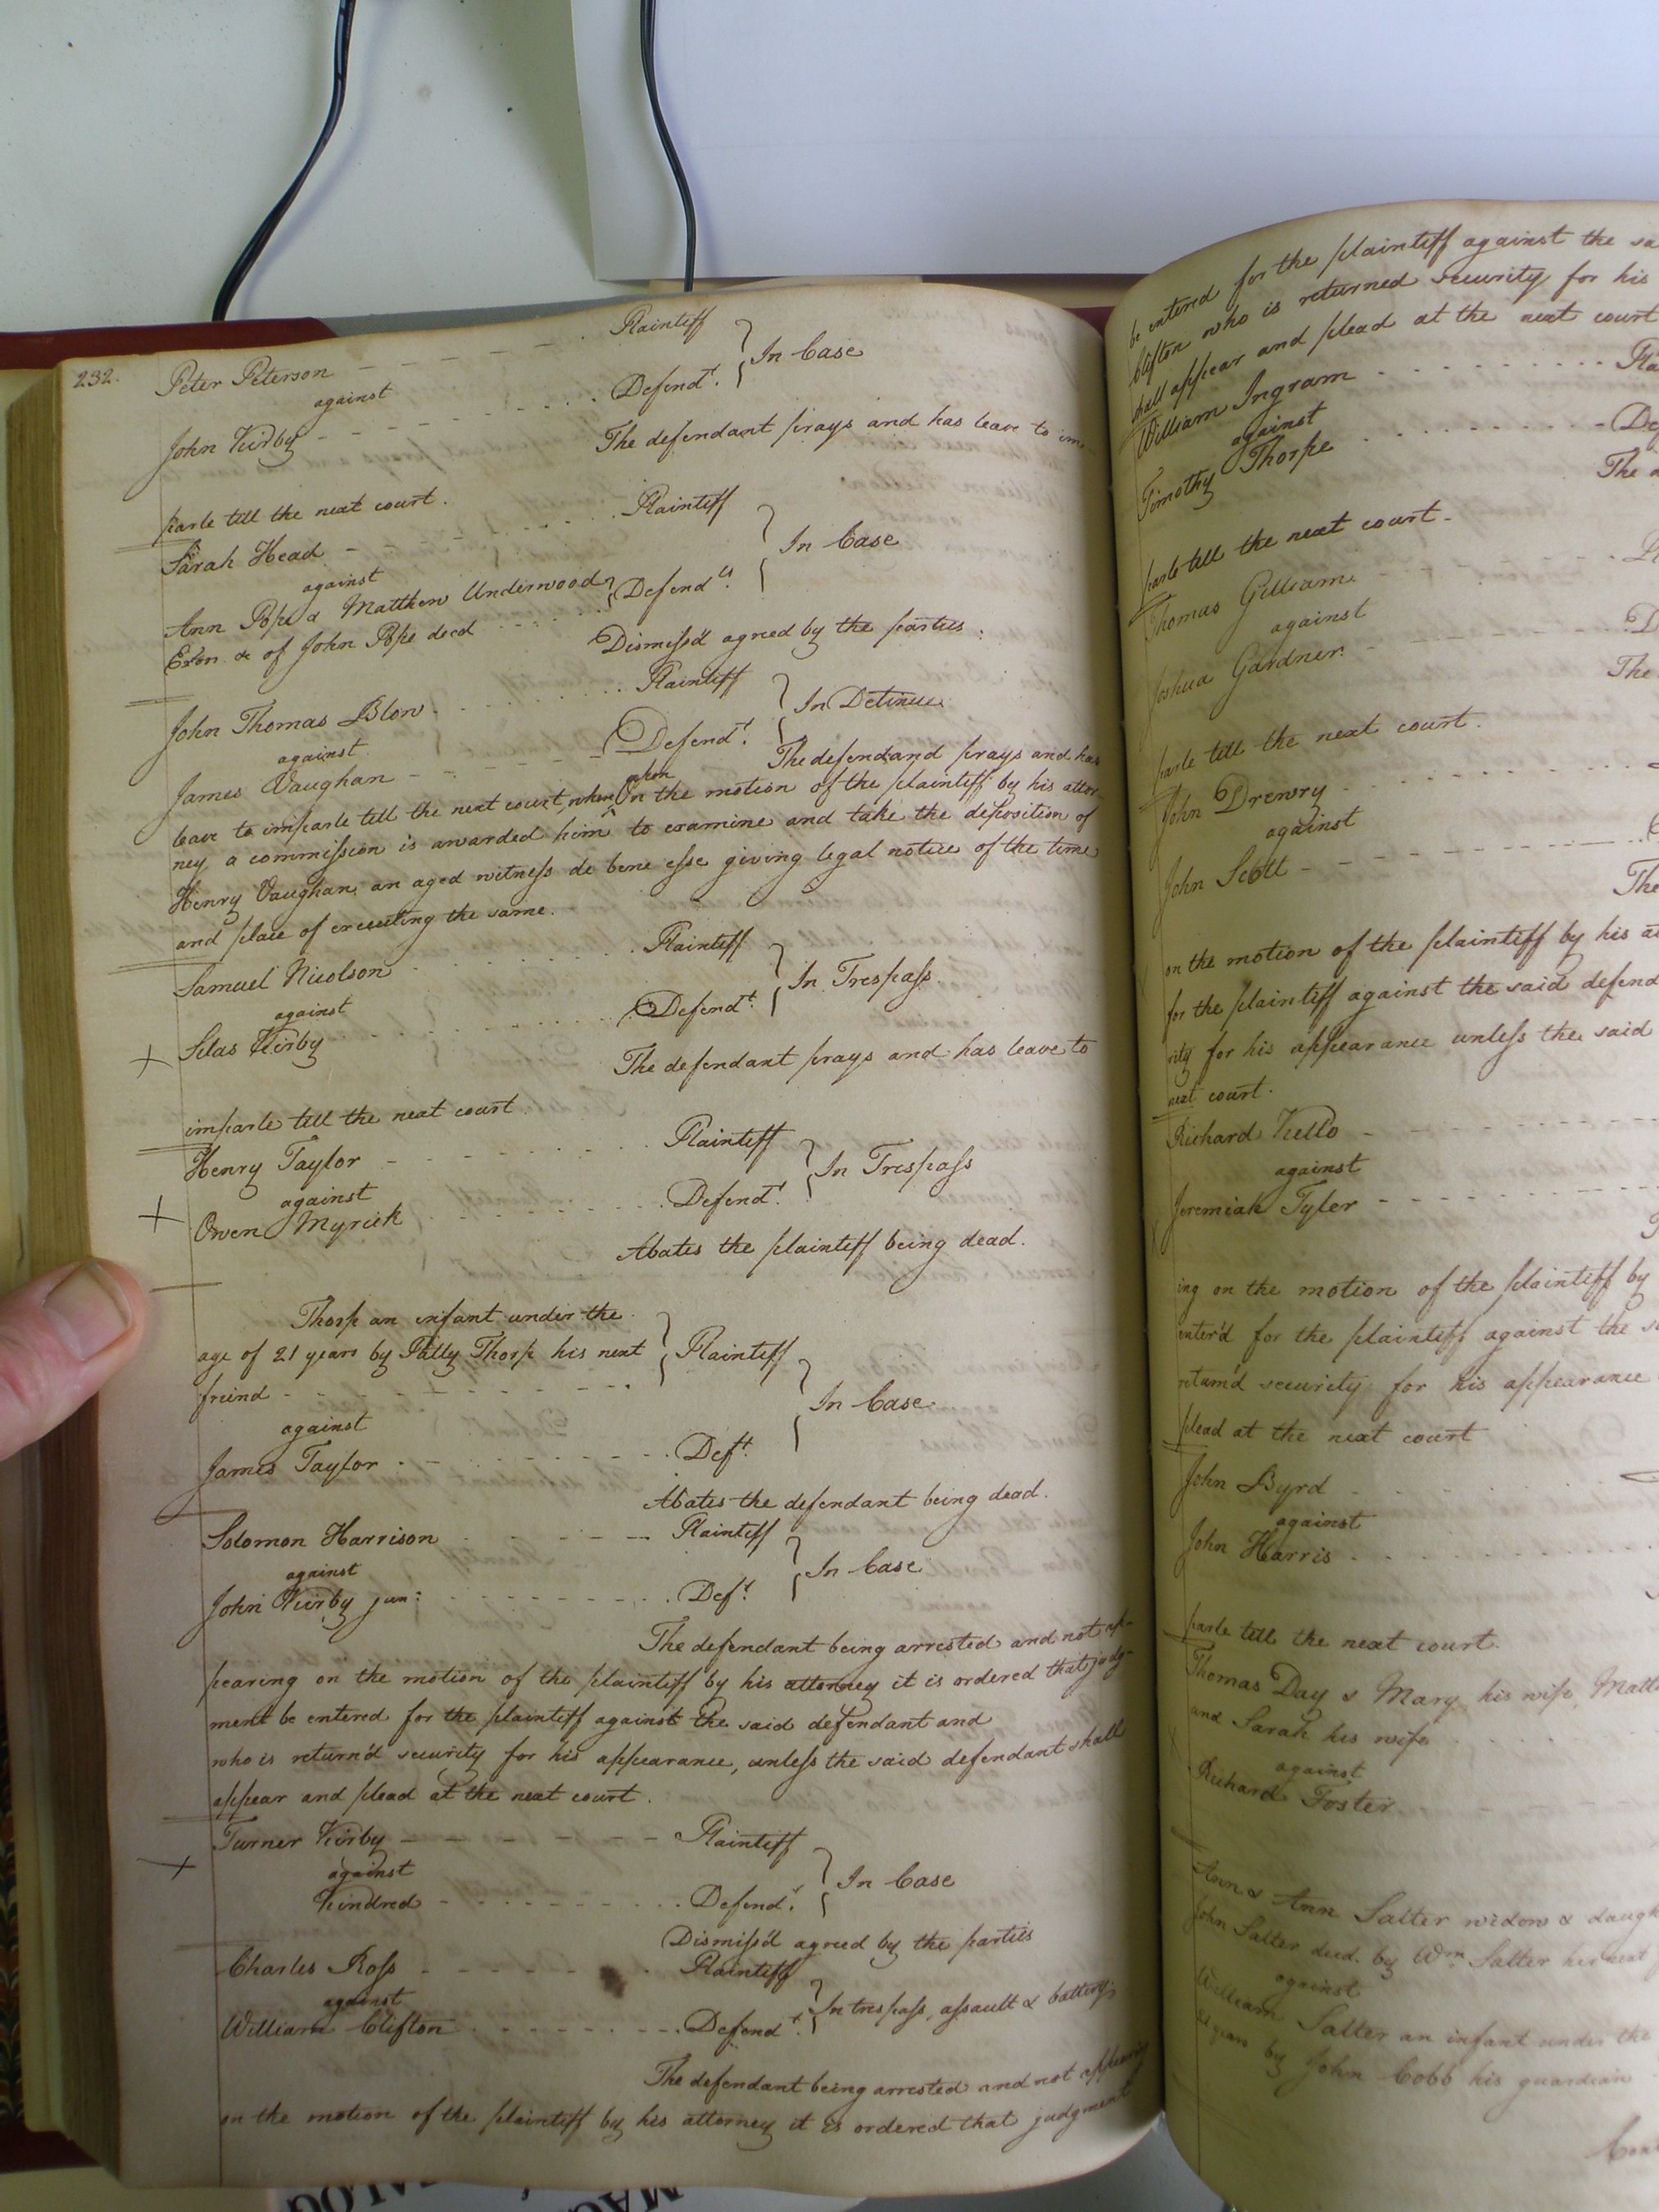 232.
Peter Peterson - - - - - - Plaintiff
against } In Case
John Kirby - - - - - - Defendt.
The defendant prays and has leave to im-
parle till the next court.
Sarah Head - - - - - - Plaintiff
against } In Case
Ann Pope & Matthew Underwood } Defendts.
Exōn &c of John Pope decd
Dismiss'd agreed by the parties.
John Thomas Blow - - - - - - Plaintiff
against } In Detinue
James Vaughan - - - - - - Defendt.
The defendand prays and has
leave to imparle till the next court, when On the motion of the plaintiff by his attor-
ney a commission is awarded him to examine and take the deposition of
Henry Vaughan an aged witness de bene esse giving legal notice of the time
and place of executing the same.
Samuel Nicolson - - - - - - Plaintiff
against } In Trespass.
Silas Kirby - - - - - - Defendt.
The defendant prays and has leave to
imparle till the next court.
Henry Taylor - - - - - - Plaintiff
against } In Trespass
Owen Myrick - - - - - - Defendt.
Abates the plaintiff being dead.
Thorp an infant under the
age of 21 years by Patty Thorp his next } Plaintiff
friend - - - - - -
against } In Case
James Taylor - - - - - - Deft.
Abates the defendant being dead.
Solomon Harrison - - - - - - Plaintiff
against } In Case
John Kirby junr. - - - - - - Deft.
The defendant being arrested and not ap-
pearing on the motion of the plaintiff by his attorney it is ordered that judg-
ment be entered for the plaintiff against the said defendant and
who is return'd security for his appearance, unless the said defendant shall
appear and plead at the next court.
Turner Kirby - - - - - - Plaintiff
against } In Case
Kindred - - - - - - Defendt.
Dismiss'd agreed by the parties
Charles Ross - - - - - - Plaintiff
against } In trespass, assault & battery
William Clifton - - - - - - Defendt.
The defendant being arrested and not appearing
on the motion of the plaintiff by his attorney it is ordered that judgment
be entered for the plaintiff against the sa
Clifton who is returned security for his
shall appear and plead at the next court
William Ingram - - - - - - Pla
against
Timothy Thorpe - - - - - - De
The
parle till the next court.
Thomas Gilliam
against
Joshua Gardner
The
parle till the next court.
John Drewry
against
John Scott
The
on the motion of the plaintiff by his at
for the plaintiff against the said defend
rity for his appearance unless the said
next court.
Richard Kello
against
Jeremiah Tyler
ing on the motion of the plaintiff by
enter'd for the plaintiff against the s
return'd security for his appearance
plead at the next court
John Byrd
against
John Harris
parle till the next court.
Thomas Day & Mary his wife, Matt
and Sarah his wife
against
Richard Foster
Ann & Ann Salter widow & daugh
John Salter decd. by Wm. Salter her next f
against
William Salter an infant under the
21 years by John Cobb his guardian